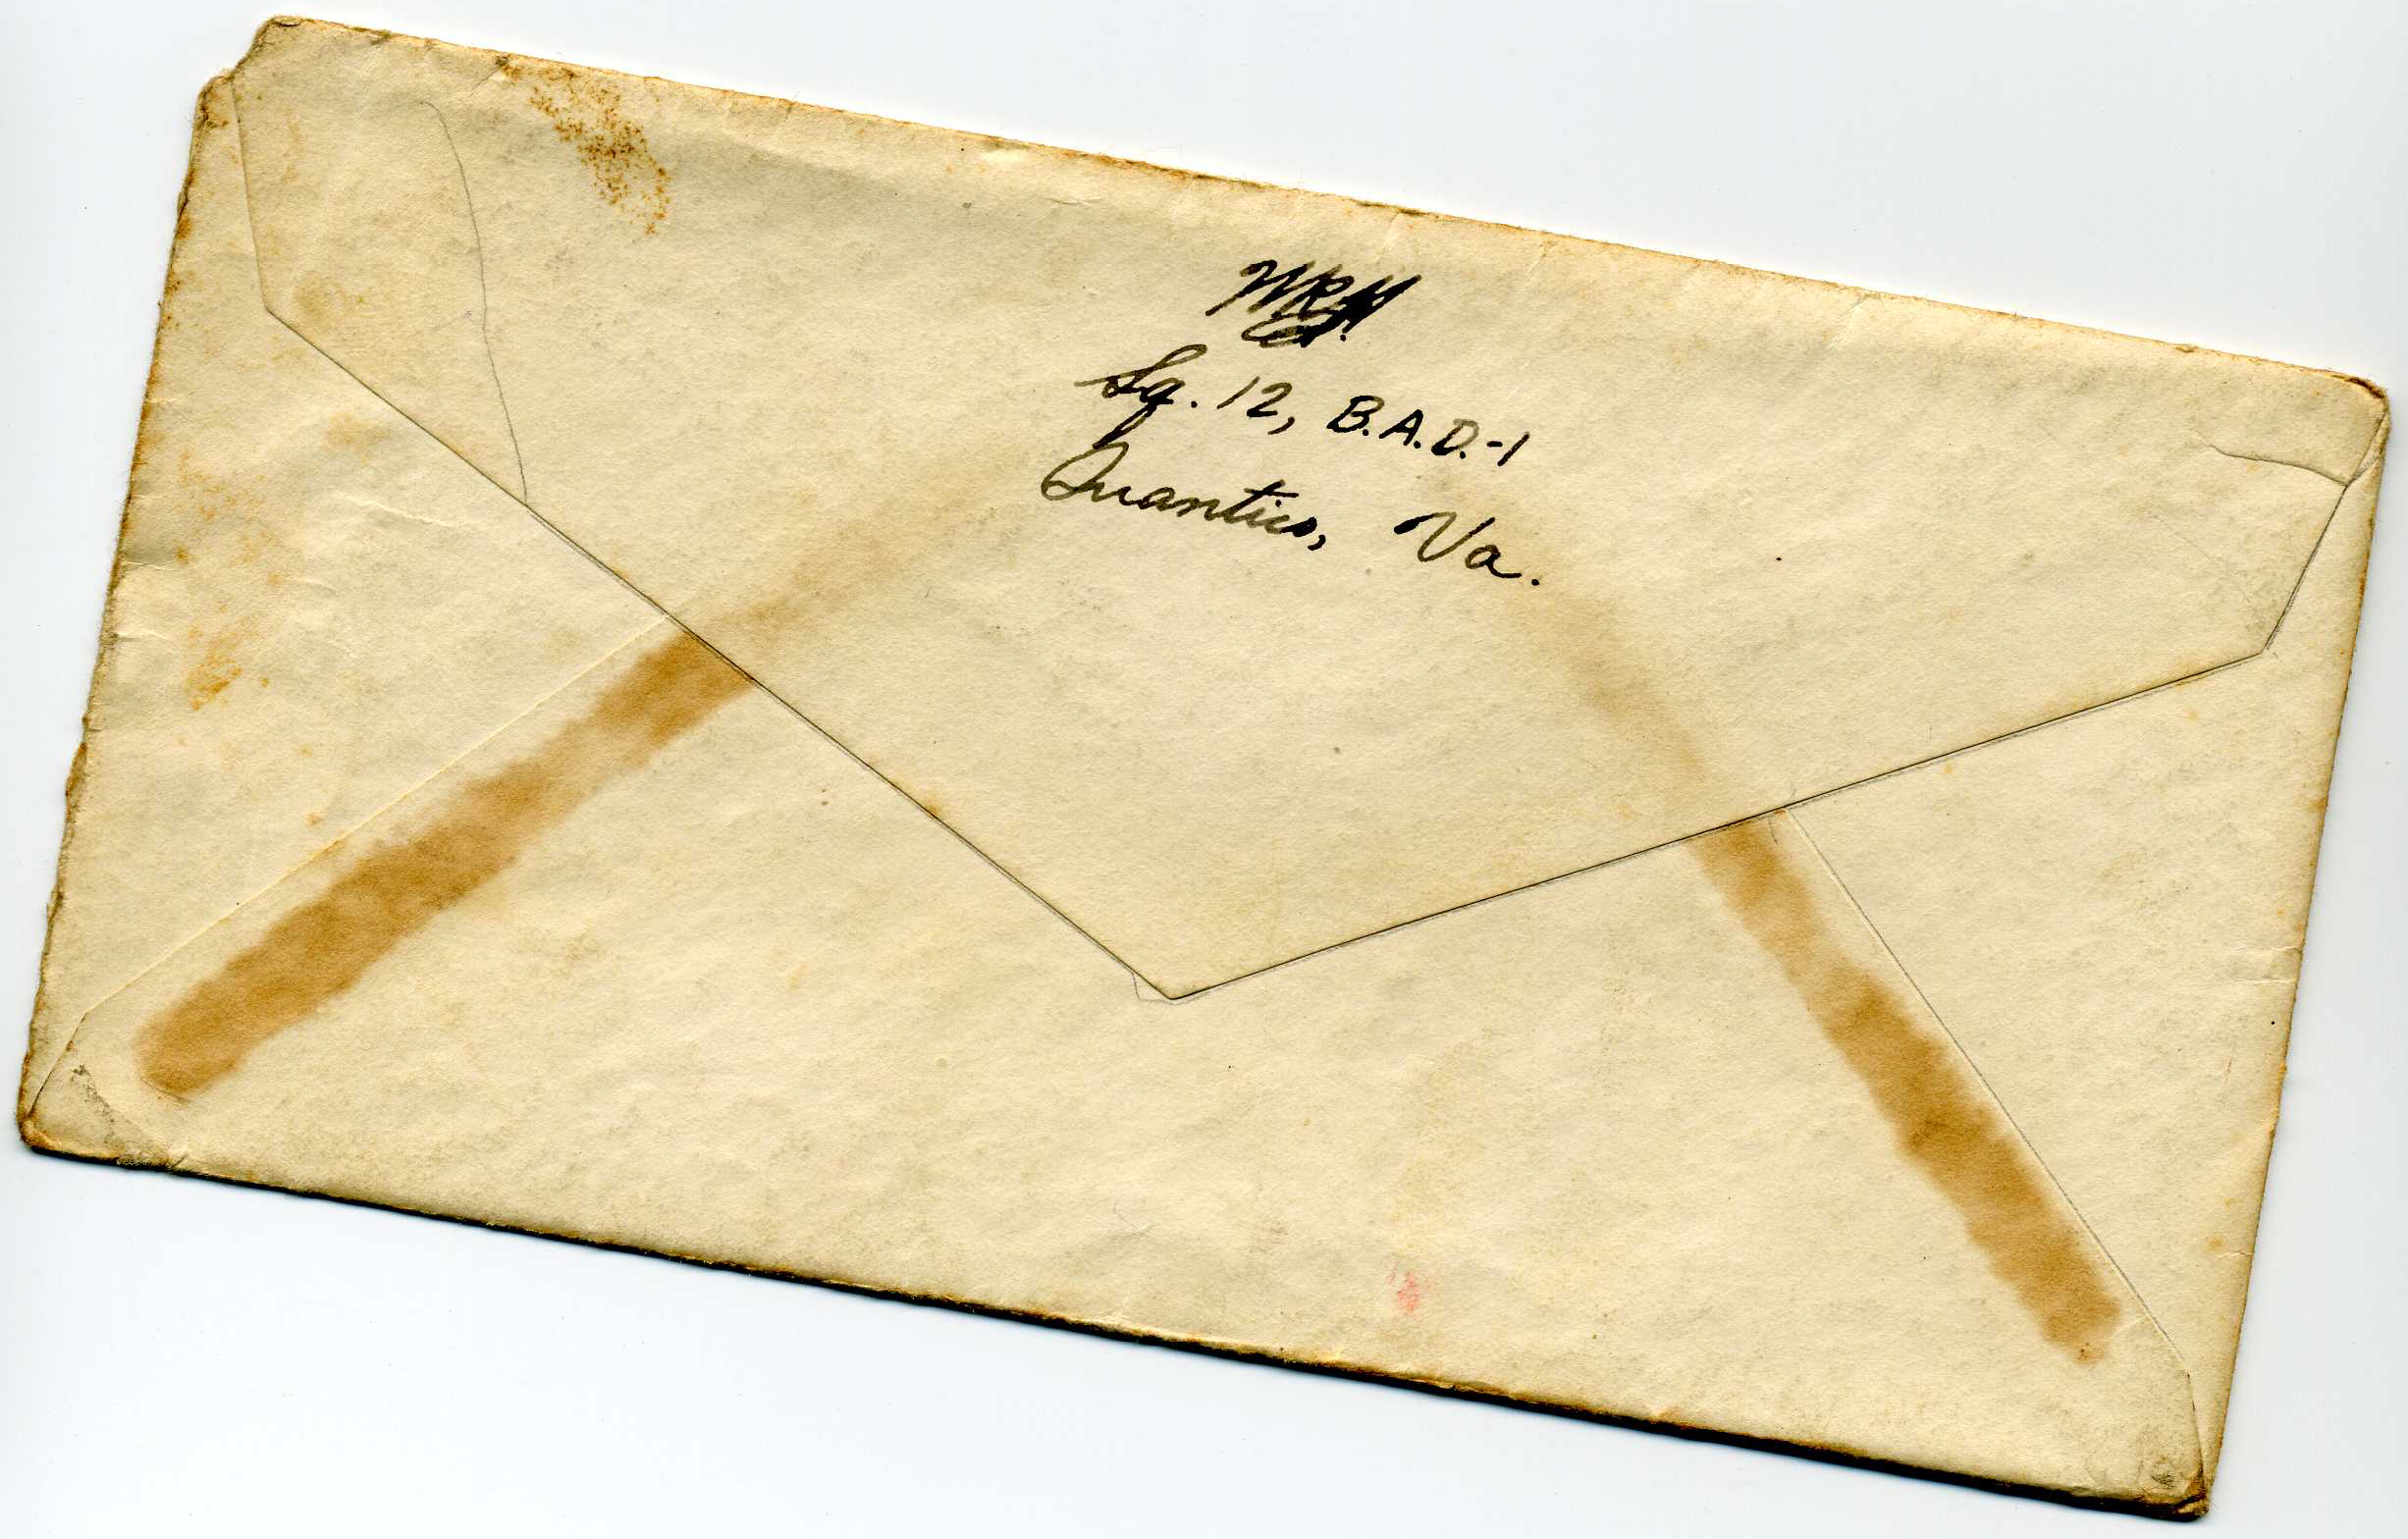 Sq. 12, B.A.D.-1
Quantico, Va.